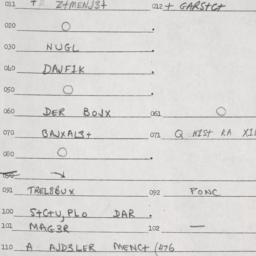 011 T8 Z+MENJS+ 012 + GARS+C+
020 O
030 NUGL
040 DAJFIK
050 O
060 DER BOJX 061 O
070 BAJXALS+ 071 Q HIST KA
080 O
091 TRELSBUX 092 PONC
100 S+C+U,PLO DAR
101 MAG3R 102 —
110 A AJD3LER MENC+ (076